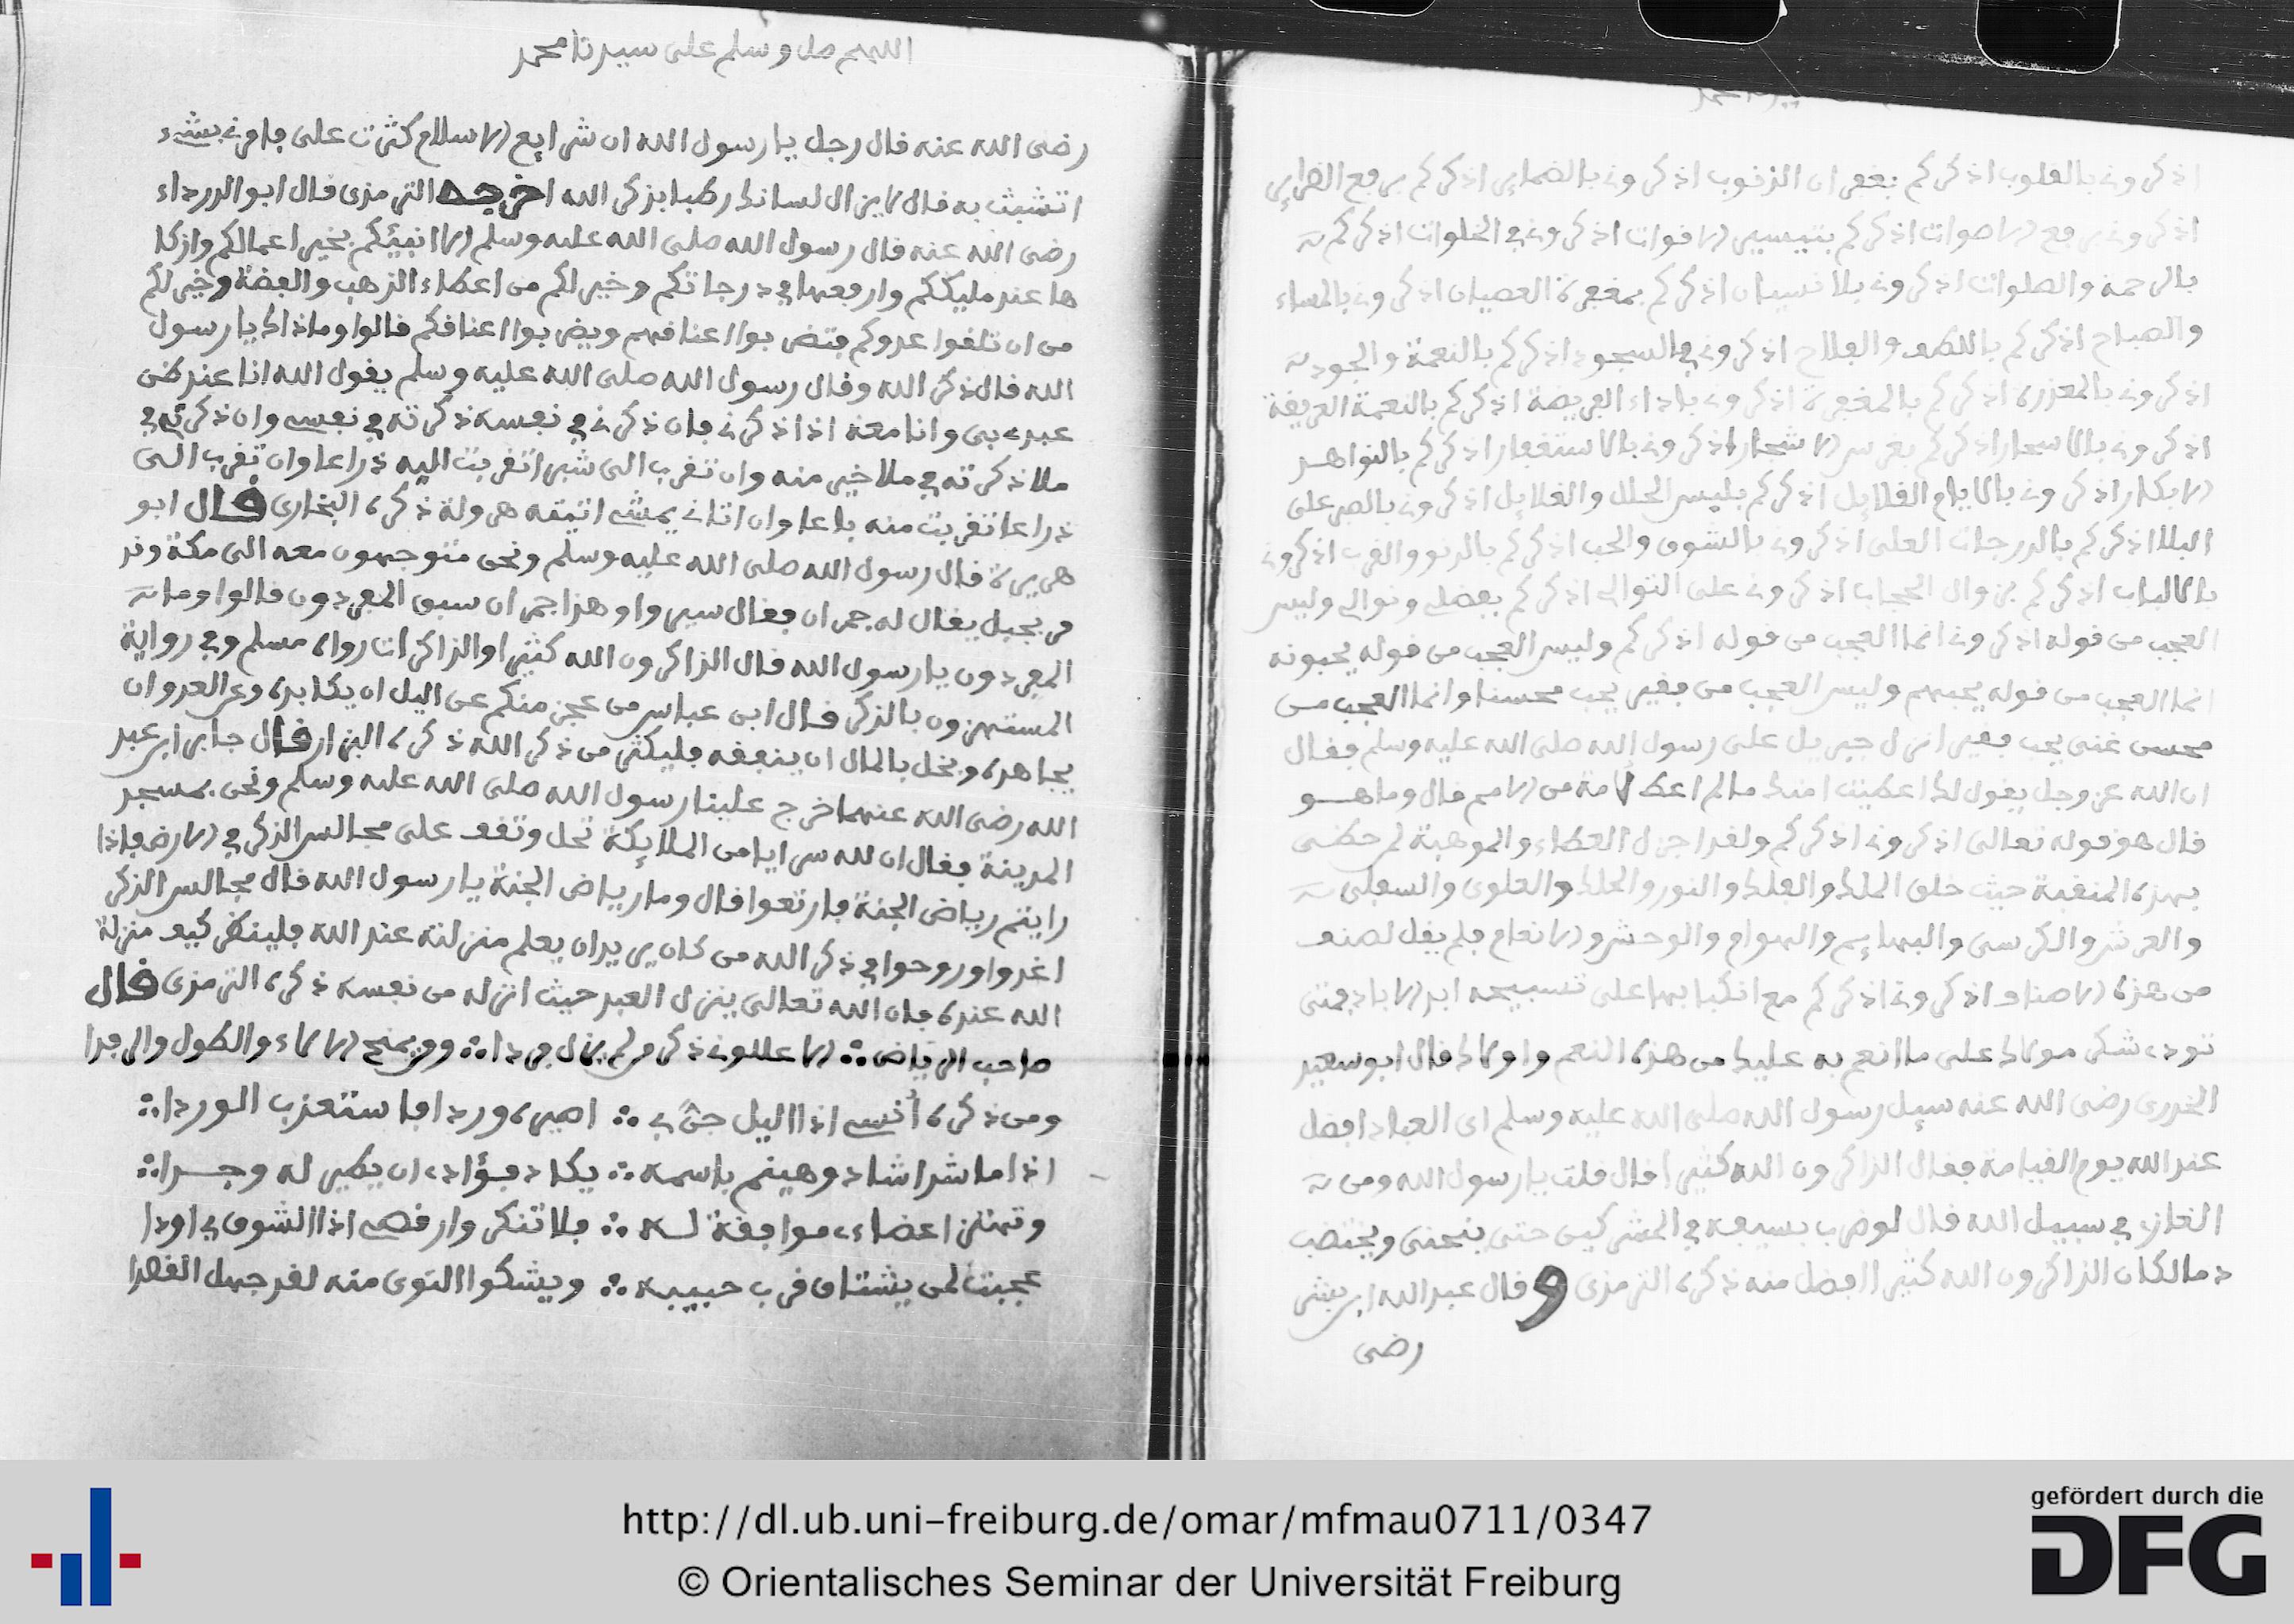 اذكروني بالقلوب اذكركم بغفران الذنوب اذكروني بالضماير اذكركم برفع الضراير
اذكروني برفع الاصوات اذكركم بتيسير الاقوات اذكروني في الخلوات اذكركم
بالرحمة والصلوات اذكروني بلا نسيان اذكركم بمغفرة العصيان اذكروني بالمساء
والصباح اذكركم باللطف والفلاح اذكروني في السجود اذكركم بالنعمة والجود
اذكروني بالمعذرة اذكركم بالمغفرة اذكروني باداء الفريضة اذكركم بالنعمة
اذكروني بالاسحار اذكركم بغرس الاشجار اذكروني بالاستغفار اذكركم
اذكروني اذكركم اذكروني بالصبر على
البلا اذكركم بالدرجات العلى اذكروني بالشوق والحب اذكركم بالدنو والقرب اذكروني
اذكركم بزوال الحجاب اذكروني على التوالي اذكركم بفضلي ونوالي وليس
العجب من قوله اذكروني انما العجب من قوله اذكركم وليس العجب من قوله يحبونه
انما العجب من قوله يحبهم وليس العجب من فقير يحب محسنا وانما العجب من
محسن غني يحب فقيرا نزل جبريل على رسول الله صلى الله عليه وسلم فقال
ان الله عز وجل يقول لك اعطيت امتك ما لم اعط امة من الامم قال وما هو
قال هو قوله تعالى اذكروني اذكركم ولقد اجزل العطاء والموهبة لمن حظي
بهذه المنقبة حيث خلق الملك والفلك والنور والحلك والعلوي والسفلي
والعرش والكرسي والبهايم والهوام والوحش والانعام فلم يقل لصنف
من هذه الاصناف اذكروني اذكركم مع انكبابها على تسبيحه ابد الاباد فمتى
تودي شكر مولاك على ما انعم به عليك من هذه النعم واولاك قال ابو سعيد
الخدري رضي الله عنه سيل رسول الله صلى الله عليه وسلم اي العباد افضل
عند الله يوم القيامة فقال الذاكرون الله كثيرا قال قلت يا رسول الله ومن
الغازي في سبيل الله قال لو ضرب بسيفه في المشركين حتى ينحني ويختضب
دما لكان الذاكرون الله كثيرا افضل منه ذكره الترمذي وقال عبد الله ابن بشر
رضي
اللهم صل وسلم على سيدنا محمد
رضي الله عنه قال رجل يا رسول الله ان شرايع الاسلام كثرت علي فامرني بشيء
اتشبث به قال لا يزال لسانك رطبا بذكر الله اخرجه الترمذي قال ابو الدرداء
رضي الله عنه قال رسول الله صلى الله عليه وسلم الا انبيئكم بخير اعمالكم وازكا
ها عند مليككم وارفعها في درجاتكم وخير لكم من اعطاء الذهب والفضة وخير لكم
من ان تلقوا عدوكم فتضربوا اعناقهم ويضربوا اعناقكم قالوا وما ذاك يا رسول
الله قال ذكر الله وقال رسول الله صلى الله عليه وسلم يقول الله انا عند ظن
عبدي بي وانا معه اذا ذكرني فان ذكرني في نفسه ذكرته في نفسي وان ذكرني في
ملا ذكرته في ملا خير منه وان تقرب الي شبرا تقربت اليه ذراعا وان تقرب الي
ذراعا تقربت منه باعا وان اتاني يمشي اتيته هرولة ذكره البخاري قال ابو
هريرة قال رسول الله صلى الله عليه وسلم ونحن متوجهون معه الى مكة وقد
مر بجبل يقال له جمران فقال سيروا وهذا جمران سبق المفردون قالوا وما
المفردون يا رسول الله قال الذاكرون الله كثيرا والذاكرات رواه مسلم وفي رواية
المستهزون بالذكر قال ابن عباس من عجز منكم عن اليل ان يكابده وعن العدو ان
يجاهده وبخل بالمال ان ينفقه فليكثر من ذكر الله ذكره البزار قال جابر ابن عبد
الله رضي الله عنهما خرج علينا رسول الله صلى الله عليه وسلم ونحن بمسجد
المدينة فقال ان لله سرايا من الملايكة تحل وتقف على مجالس الذكر في الارض فاذا
رايتم رياض الجنة فارتعوا قال وما رياض الجنة يا رسول الله قال مجالس الذكر
اغدوا وروحوا في ذكر الله من كان يريد ان يعلم منزلته عند الله فلينظر كيف منزلة
الله عنده فان الله تعالى ينزل العبد حيث انزله من نفسه ذكره الترمذي قال
صاحب الرياض الا عللوني ذكر من لم يزل فردا ومن يمنح الالاء والطول والرفدا
ومن ذكره انسي اذا اليل جن بي اصيره وردا فاستعذب الوردا
اذا ما شدا شاد وهينم باسمه يكاد فؤادي ان يطير له وجدا
وتهتز اعضاءي موافقة له فلا تنكروا رقصي اذا الشوق بي اودا
عجبت لمن يشتاق قرب حبيبه ويشكوا النوى منه لقد جهل القصدا
http://dl.ub.uni-freiburg.de/omar/mfmau0711/0347
© Orientalisches Seminar der Universität Freiburg
gefördert durch die
DFG